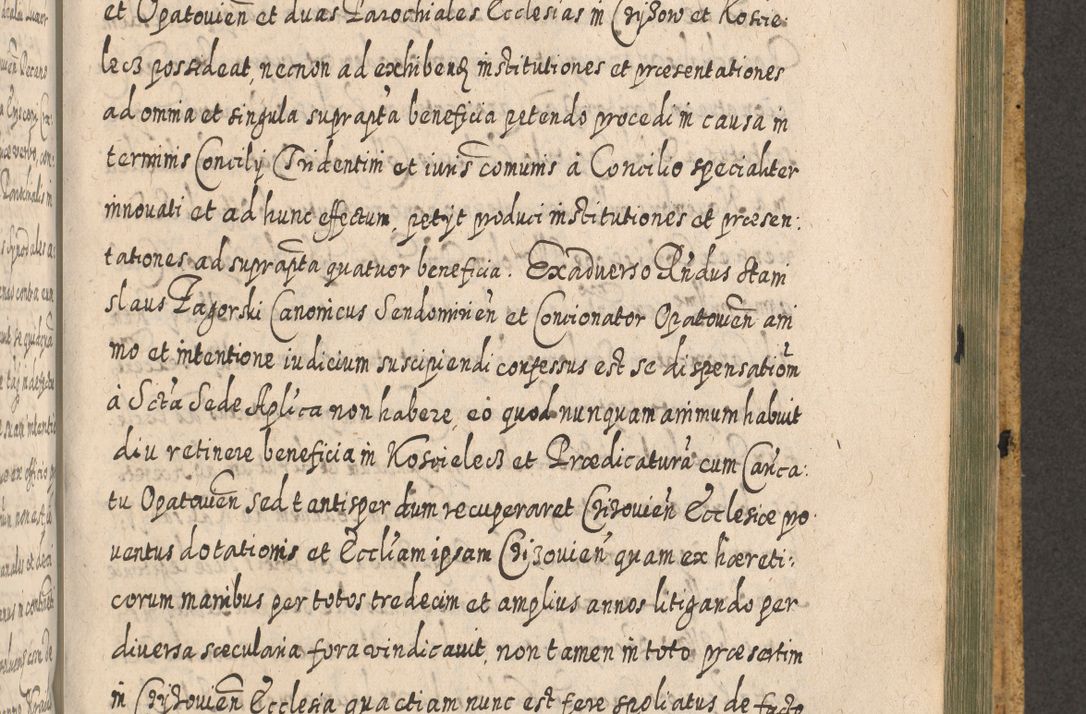 et Opatouien̄ et duas Parochiales Ecclesias in Crizow et Koscie:
lecz possideat, necnon ad exhibendū institutiones et præsentationes
ad omnia et singula suprapt̄a beneficia petendo procedi in causa in
terminis Concilij Tridentini et iuris comunis à Concilio specialiter
innouati et ad hunc effectum, petijt produci institutiones et præsen:
tationes ad suprapt̄a quatuor beneficia. Ex aduerso Rn̄dus Stani
slaus Zagorski Canonicus Sendomirien̄ et Concionator Opatouien̄ ani
mo et intentione iudicium suscipiendi confessus est se dispensatiōm
à Sct̄a Sede Aplīca non habere, eò quod nunquam animum habuit
diu retinere beneficia in Koscielecz et Prædicatura cum Can̄ca:
tu Opatouien̄ sed tantisper dum recuperaret Crizouien̄ Ecclesiæ pro
uentus dotationis et Eccliām ipsam Crizouien̄ quam ex hæreti:
corum manibus per totos tredecim et amplius annos litigando per
diuersa sæcularia fora vindicauit, non tamen in toto præsertim
in Crizouien̄ Ecclesia qua etiam nunc est fere spoliatus de facto